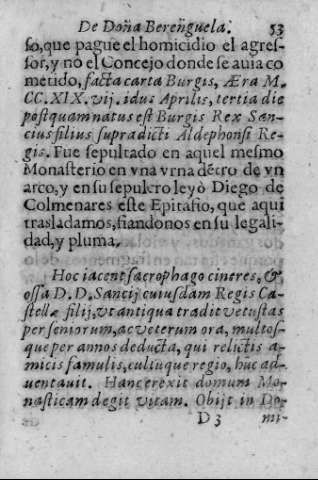 De Doña Berenguela. 53
so, que pague el homicidio el agres-
sor, y nó el Concejo donde se auia co
metido, facta carta Burgis, Æra M.
CC.XIX. vij. idus Aprilis, tertia die
postquam natus est Burgis Rex San-
cius filius supradicti Aldephonsi Re-
gis. Fue sepultado en aquel mesmo
Monasterio en vna vrna dētro de vn
arco, y en su sepulcro leyò Diego de
Colmenares este Epitafio, que aqui
trasladamos, fiandonos en su legali-
dad, y pluma.
Hoc iacent sacrophago cineres, &
ossa D. D. Sancij cuiusdam Regis Ca-
stellæ filij, vt antiqua tradit vetustas
per seniorum, ac veterum ora, multos-
que per annos deducta, qui relictis a-
micis famulis, cultuque regio, huc ad-
uentauit. Hanc erexit domum Mo-
nasticam degit vitam. Obijt in Do-
D 3 mi-